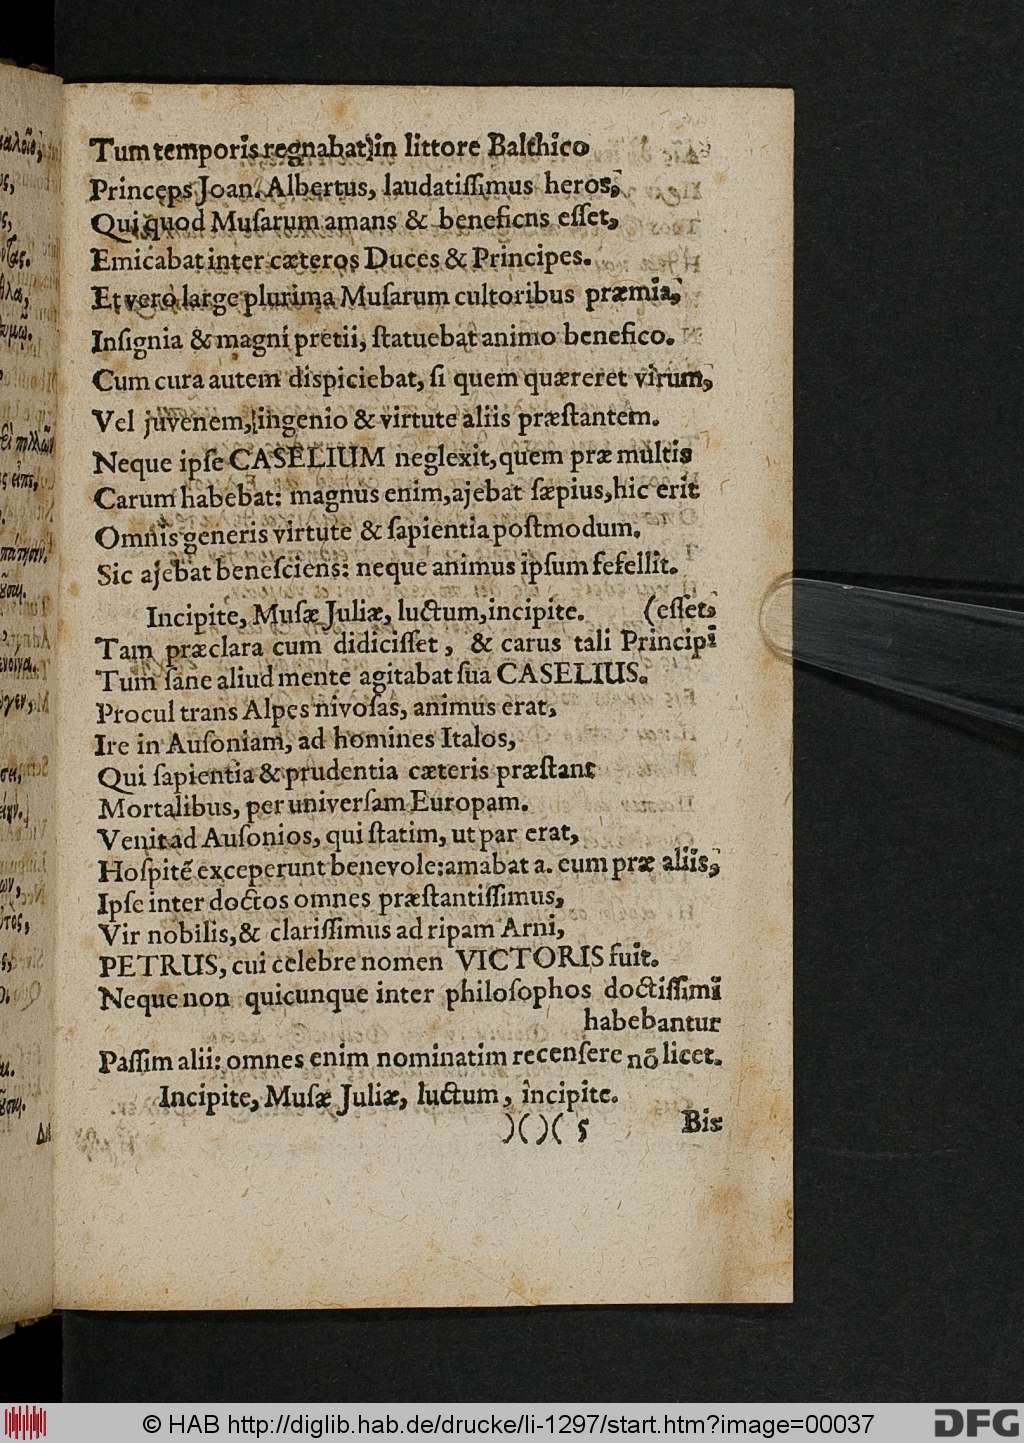 Tum temporis regnabat in littore Balthico
Princeps Joan. Albertus, laudatiſſimus heros,
Qui quod Muſarum amans & beneficns eſſet,
Emicabat inter cæteros Duces & Principes.
Et vero large plurima Muſarum cultoribus præmia,
Inſignia & magni pretii, ſtatuebat animo benefico.
Cum cura autem dispiciebat, ſi quem quæreret virum,
Vel juvenem, ingenio & virtute aliis præſtantem.
Neque ipſe CASELIUM neglexit, quem præ multis
Carum habebat: magnus enim, ajebat ſæpius, hic erit
Omnis generis virtute & ſapientia poſtmodum.
Sic ajebat beneſciens: neque animus ipſum fefellit.
Incipite, Muſæ Juliæ, luctum, incipite. (eſſet,
Tam præclara cum didiciſſet, & carus tali Principi
Tum ſane aliud mente agitabat ſua CASELIUS.
Procul trans Alpes nivoſas, animus erat,
Ire in Auſoniam, ad homines Italos,
Qui ſapientia & prudentia cæteris præſtant
Mortalibus, per univerſam Europam.
Venit ad Auſonios, qui ſtatim, ut par erat,
Hoſpitẽ exceperunt benevole: amabat a. eum præ aliis,
Ipſe inter doctos omnes præſtantiſſimus,
Vir nobilis, & clariſſimus ad ripam Arni,
PETRUS, cui celebre nomen VICTORIS fuit.
Neque non quicunque inter philoſophos doctiſſimi
habebantur
Paſſim alii: omnes enim nominatim recenſere nõ licet.
Incipite, Muſæ Juliæ, luctum, incipite.
)( )( 5 Bis
© HAB http://diglib.hab.de/drucke/li-1297/start.htm?image=00037
DFG